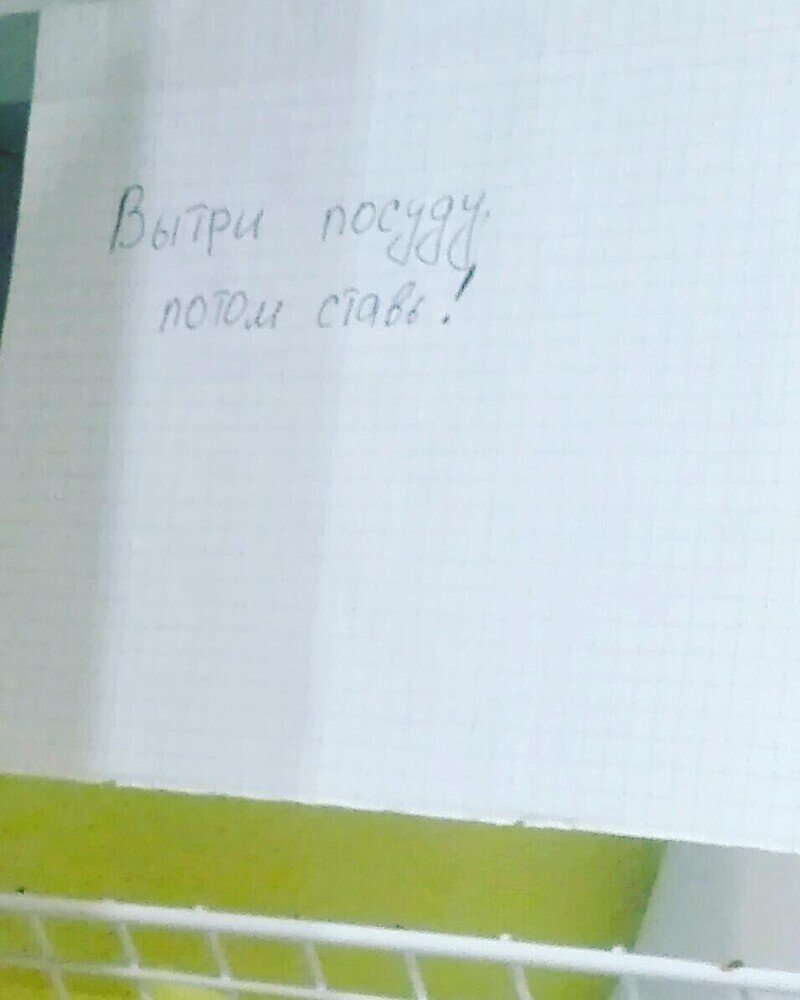 Вытри посуду.
потом ставь!